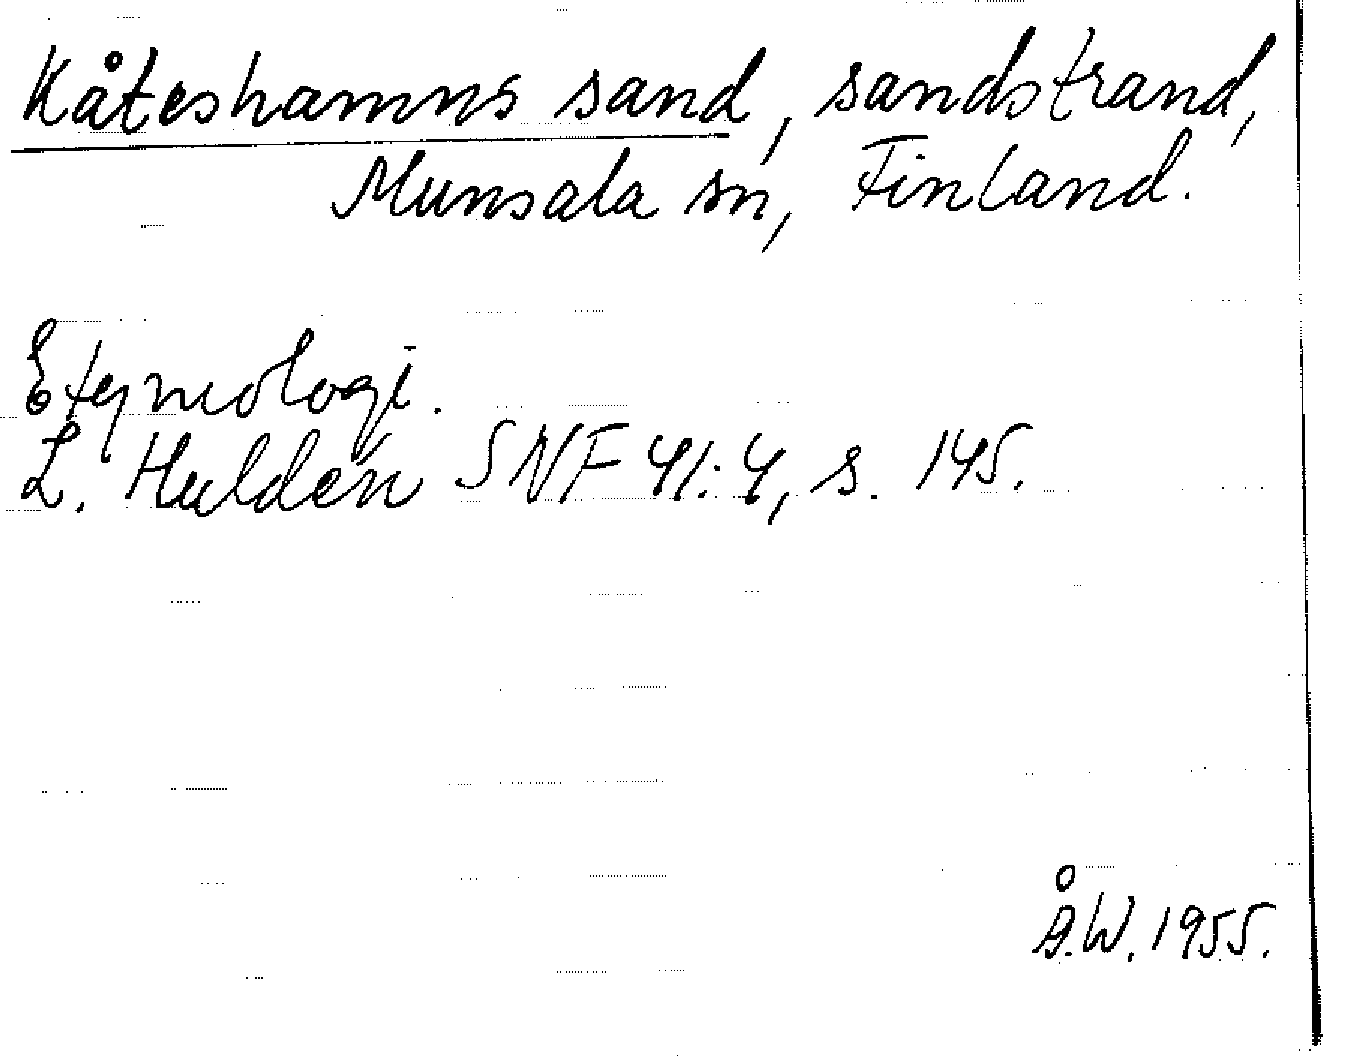 Kåteshamns sand, sandstrand,
Munsala sn, Finland.
Etymologi.
L. Huldén SNF 41:4, s. 145.
Å.W. 1955.